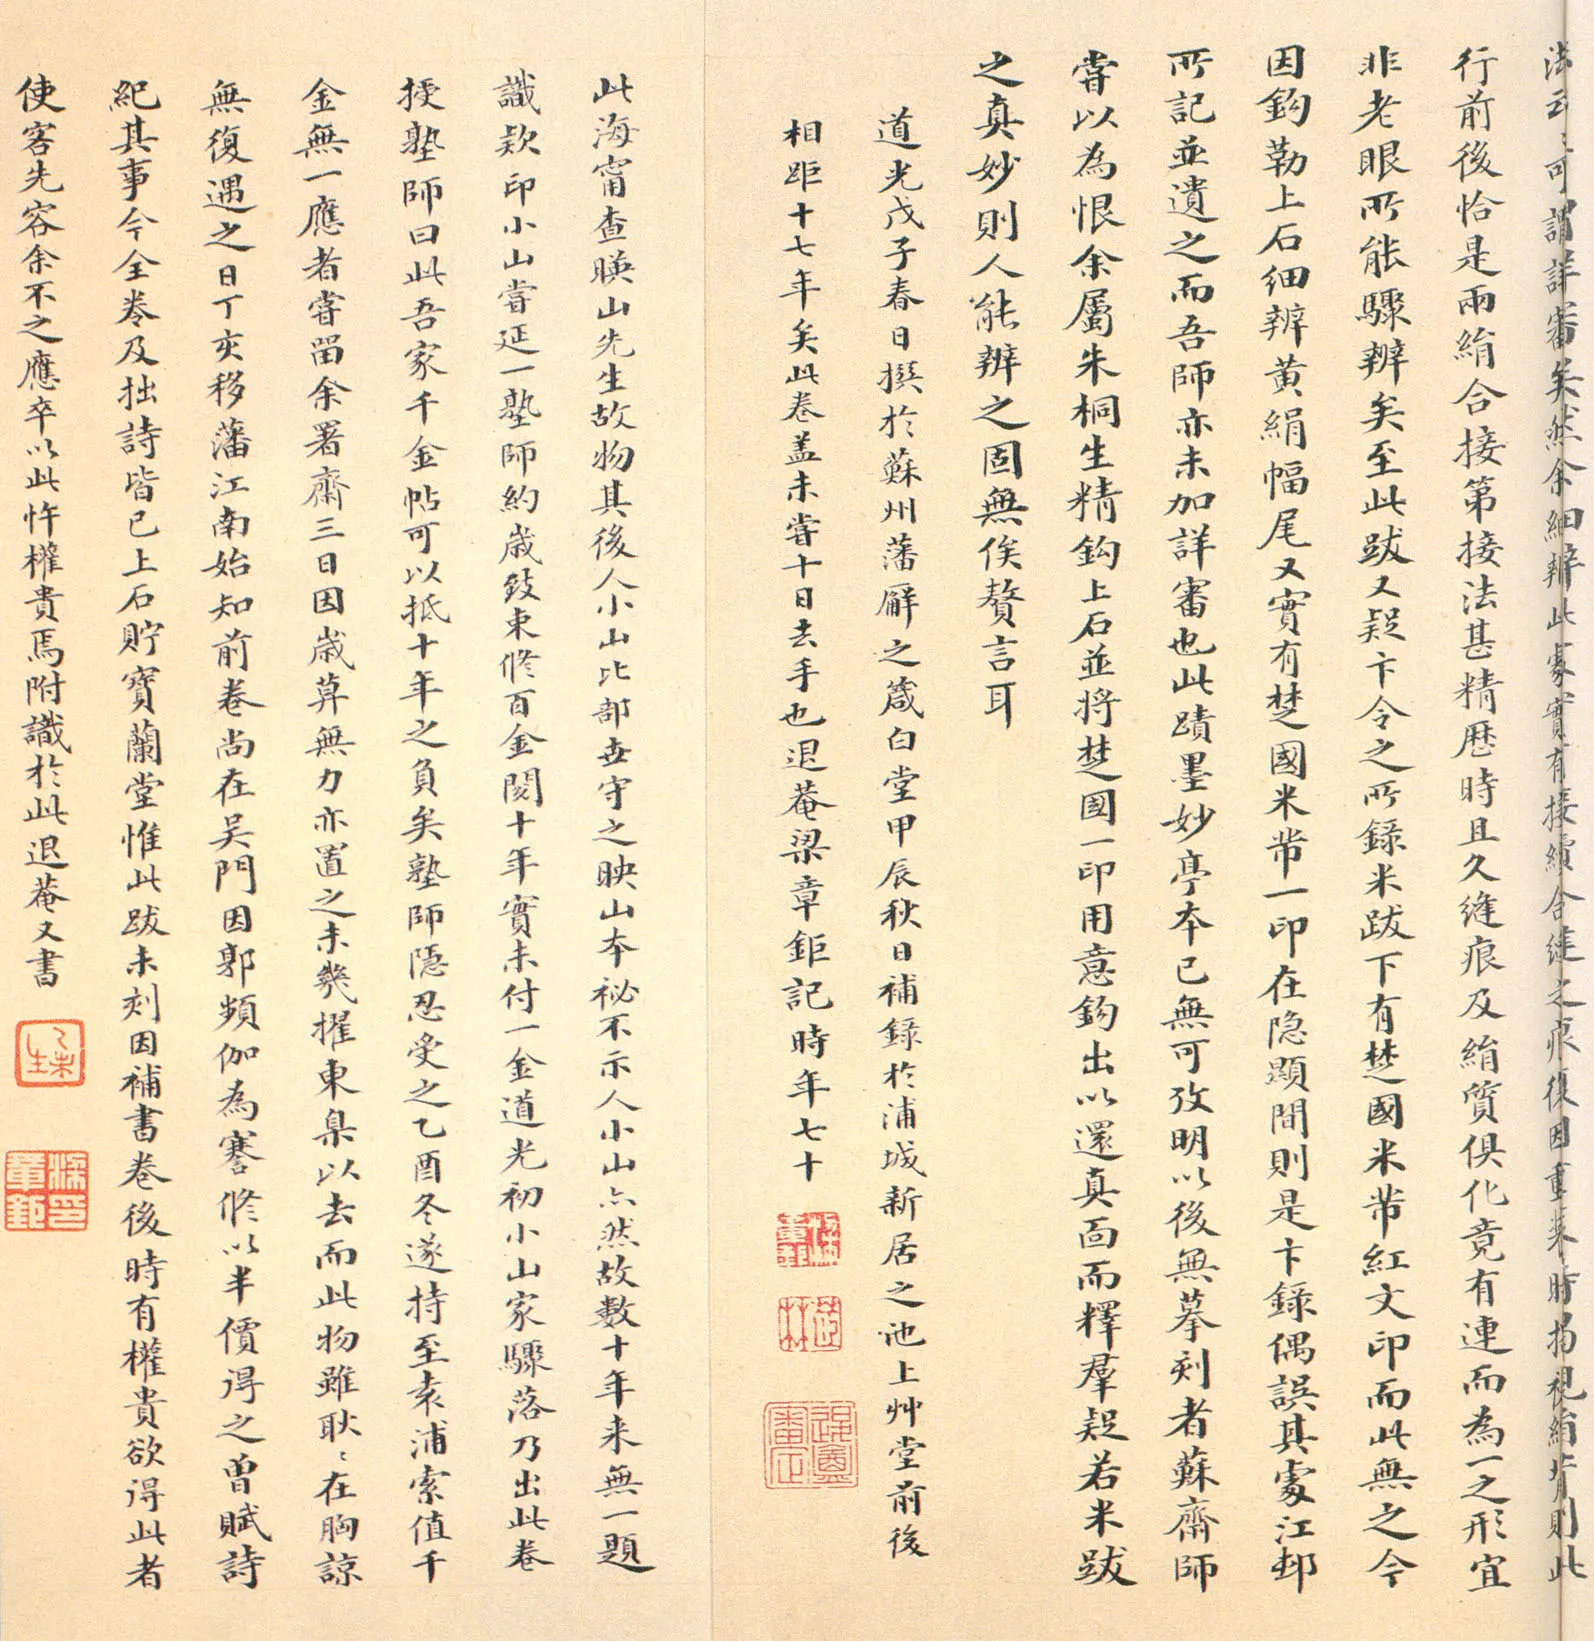 法云云可謂詳審矣然余細辨此處實有接續合縫之痕復因重裝時揭視絹背則此
行前後恰是兩絹合接第接法甚精歷時且久縫痕及絹質俱化竟有連而為一之形宜
非老眼所能驟辨矣至此跋又疑卞令之所錄米跋下有楚國米芾紅文印而此無之今
因鈎勒上石細辨黃絹幅尾又實有楚國米芾一印在隐顯間則是卞錄偶誤其處江邨
所記並遺之而吾師亦未加詳審也此蹟墨妙亭本已無可攷明以後無摹刻者蘇齋師
嘗以為恨余屬朱桐生精鈎上石並將楚國一印用意鈎出以還真面而釋羣疑若米跋
之真妙則人能辨之固無俟贅言耳
道光戊子春日撰於蘇州藩廨之箴白堂甲辰秋日補錄於浦城新居之池上艸堂前後
相距十七年矣此卷盖未嘗十日去手也退菴梁章鉅記時年七十
此海甯查暎山先生故物其後人小山比部世守之映山本秘不示人小山亦然故數十年来無一題
識欵印小山嘗延一塾師約歲致束脩百金閱十年實未付一金道光初小山家驟落乃出此卷
授塾師曰此吾家千金帖可以抵十年之負矣塾師隱忍受之乙酉冬遂持至袁浦索值千
金無一應者嘗留余署齋三日因歲莫無力亦置之未幾擢東臬以去而此物雖耿耿在胸諒
無復遇之日丁亥移藩江南始知前卷尚在吴門因郭頻伽為蹇脩以半價得之曾賦詩
紀其事今全卷及拙詩皆已上石貯寶蘭堂惟此跋未刻因補書卷後時有權貴欲得此者
使客先容余不之應卒以此忤權貴焉附識於此退菴又書